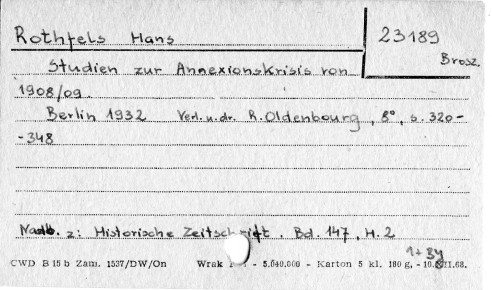 Rothfels Hans 23189
Brosz.
Studien zur Annexionskrisis von
1908/09.
Berlin 1932 Verl. u. dr. R. Oldenbourg, 8°, s. 320-
-348
Nadb. z: Historische Zeitschrift. Bd. 147, H. 2
CWD B 15 b Zam. 1537/DW/On Wrak - 5.040.000 - Karton 5 kl. 180 g,